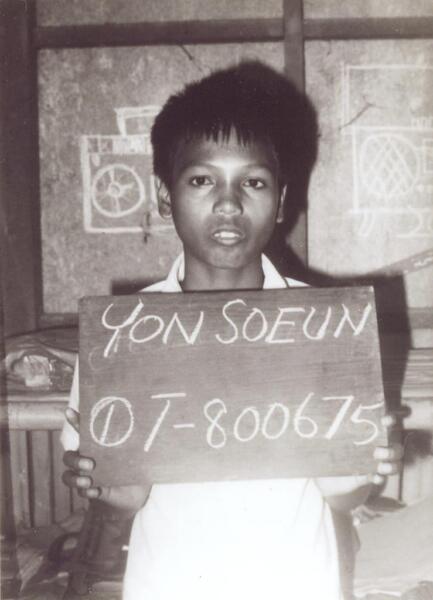 YON SOEUN
① T-800675